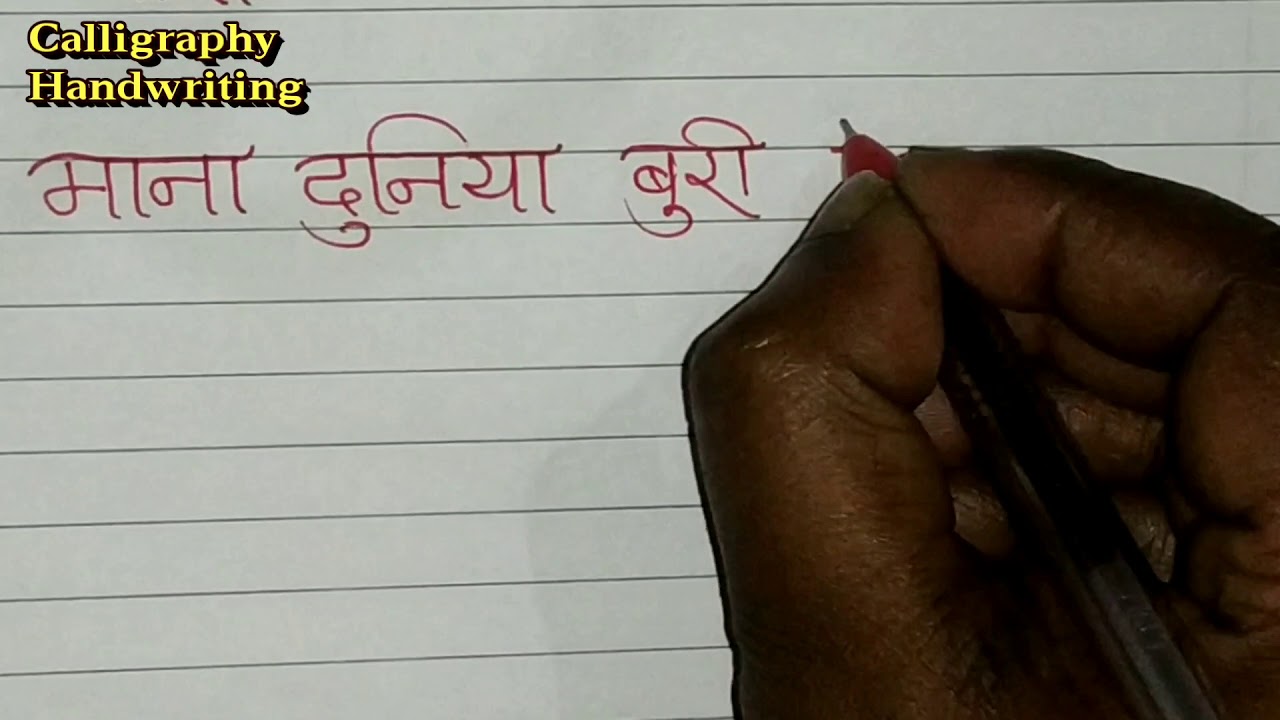 Calligraphy
Handwriting
माना दुनिया बुरी